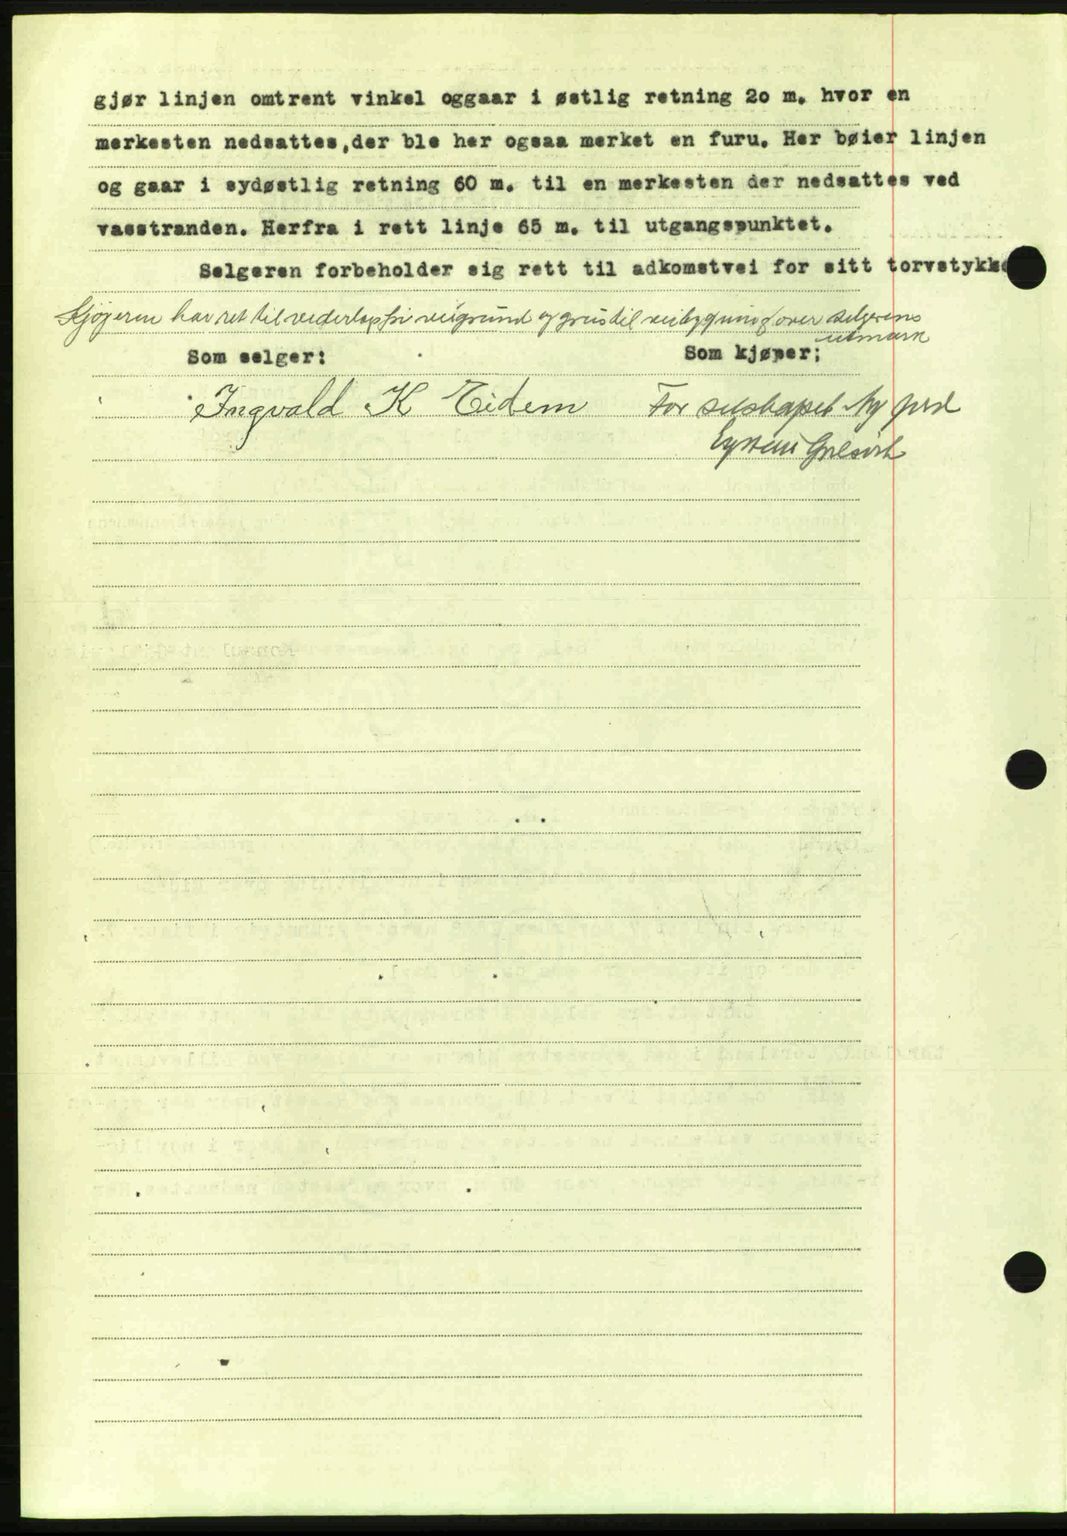 gjør linjen omtrent vinkel oggaar i østlig retning 20 m. hvor en
merkesten nedsattes,der ble her ogsaa merket en furu. Her bøier linjen
og gaar i sydøstlig retning 60 m. til en merkesten der nedsattes ved
vasstranden. Herfra i rett linje 65 m. til utgangspunktet.
Selgeren forbeholder sig rett til adkomstvei for sitt torvstykke
Kjøperen har ret til vederlagsfri veigrund og grus til veibygning over selgerens
utmark
Som selger: Som kjøper;
Ingvald K Eidem For selskapet Ny jord